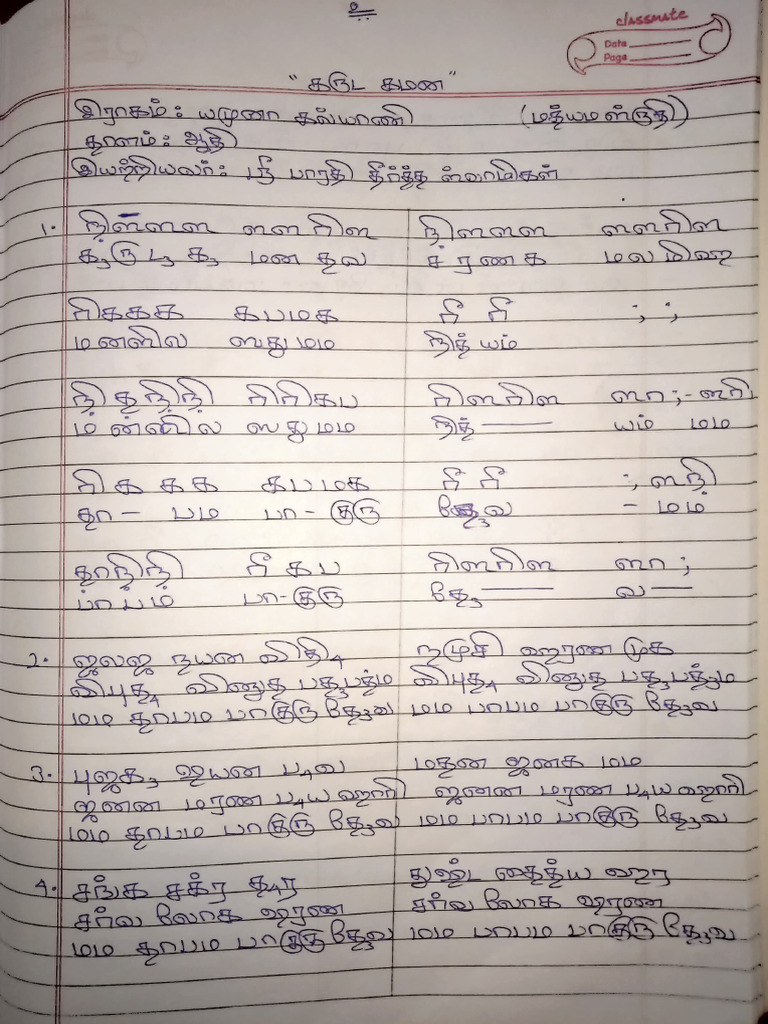 உ
classmate
Date
Page
"கருட கமன"
இராகம் : யமுனா கல்யாணி (மத்யமஸ்ருதி)
தாளம் : ஆதி
இயற்றியவர் : ஸ்ரீ பாரதி தீர்த்த ஸ்வாமிகள்
1. நி̣ஸஸஸ ஸஸரிஸ நி̣ஸஸஸ ஸஸரிஸ
க₃ருட₃ க₃ மன தவ சரணக மலமிஹ
ரிககக கபமக ரீ ரீ ; ;
மனஸில ஸதுமம நித்யம்
நி̣த̣நி̣நி̣ ரிரிகப ரிஸரிஸ ஸா ;-ஸரி
மன்ஸில ஸதுமம நித் யம் மம
ரிக கக கபமக ரீ ரீ ;, ஸநி̣
தா- பம பா-குரு தே₃வ - மம
தா̣நி̣நி̣ ரீ கப ரிஸரிஸ ஸா ;
பாபம் பா-குரு தே₃ வ
2. ஜலஜ நயன விதி₄ நமுசி ஹரண முக
விபுத₄ வினுத பத₃பத்ம விபுத₄ வினுத பத₃பத்ம
மம தாபம பாகுரு தே₃வ மம பாபம பாகுரு தே₃வ
3. புஜக₃ ஷயன ப₄வ மதன ஜனக மம
ஜனன மரண ப₄ய ஹாரி ஜனன மரண ப₄ய ஹாரி
மம தாபம பாகுரு தே₃வ மம பாபம பாகுரு தே₃வ
4. சங்க சக்ர த₄ர துஷ்ட தைத்ய ஹர
சர்வ லோக ஷரண சர்வ லோக ஷரண
மம தாபம பாகுரு தே₃வ மம பாபம பாகுரு தே₃வ